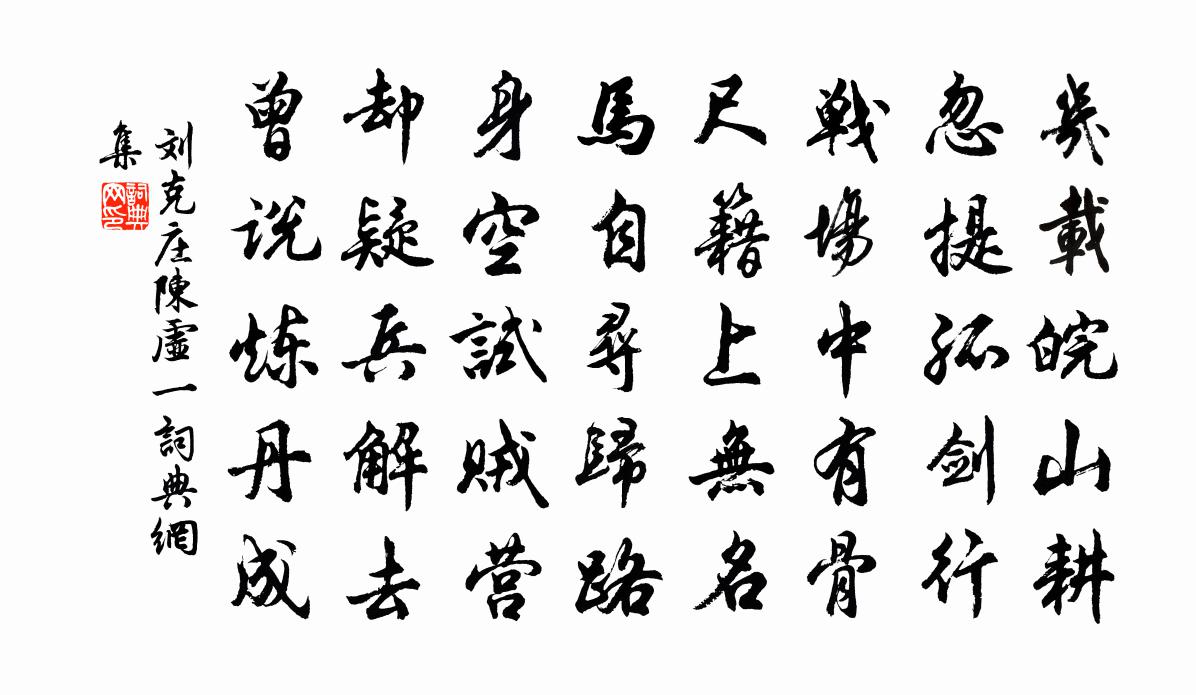 幾載皖山耕
忽提孤剑行
戦場中有骨
尺籍上無名
馬自尋歸路
身空試賊营
却疑兵解去
曾説炼丹成
刘克庄陳虚一詞典網
集
詞典
网印